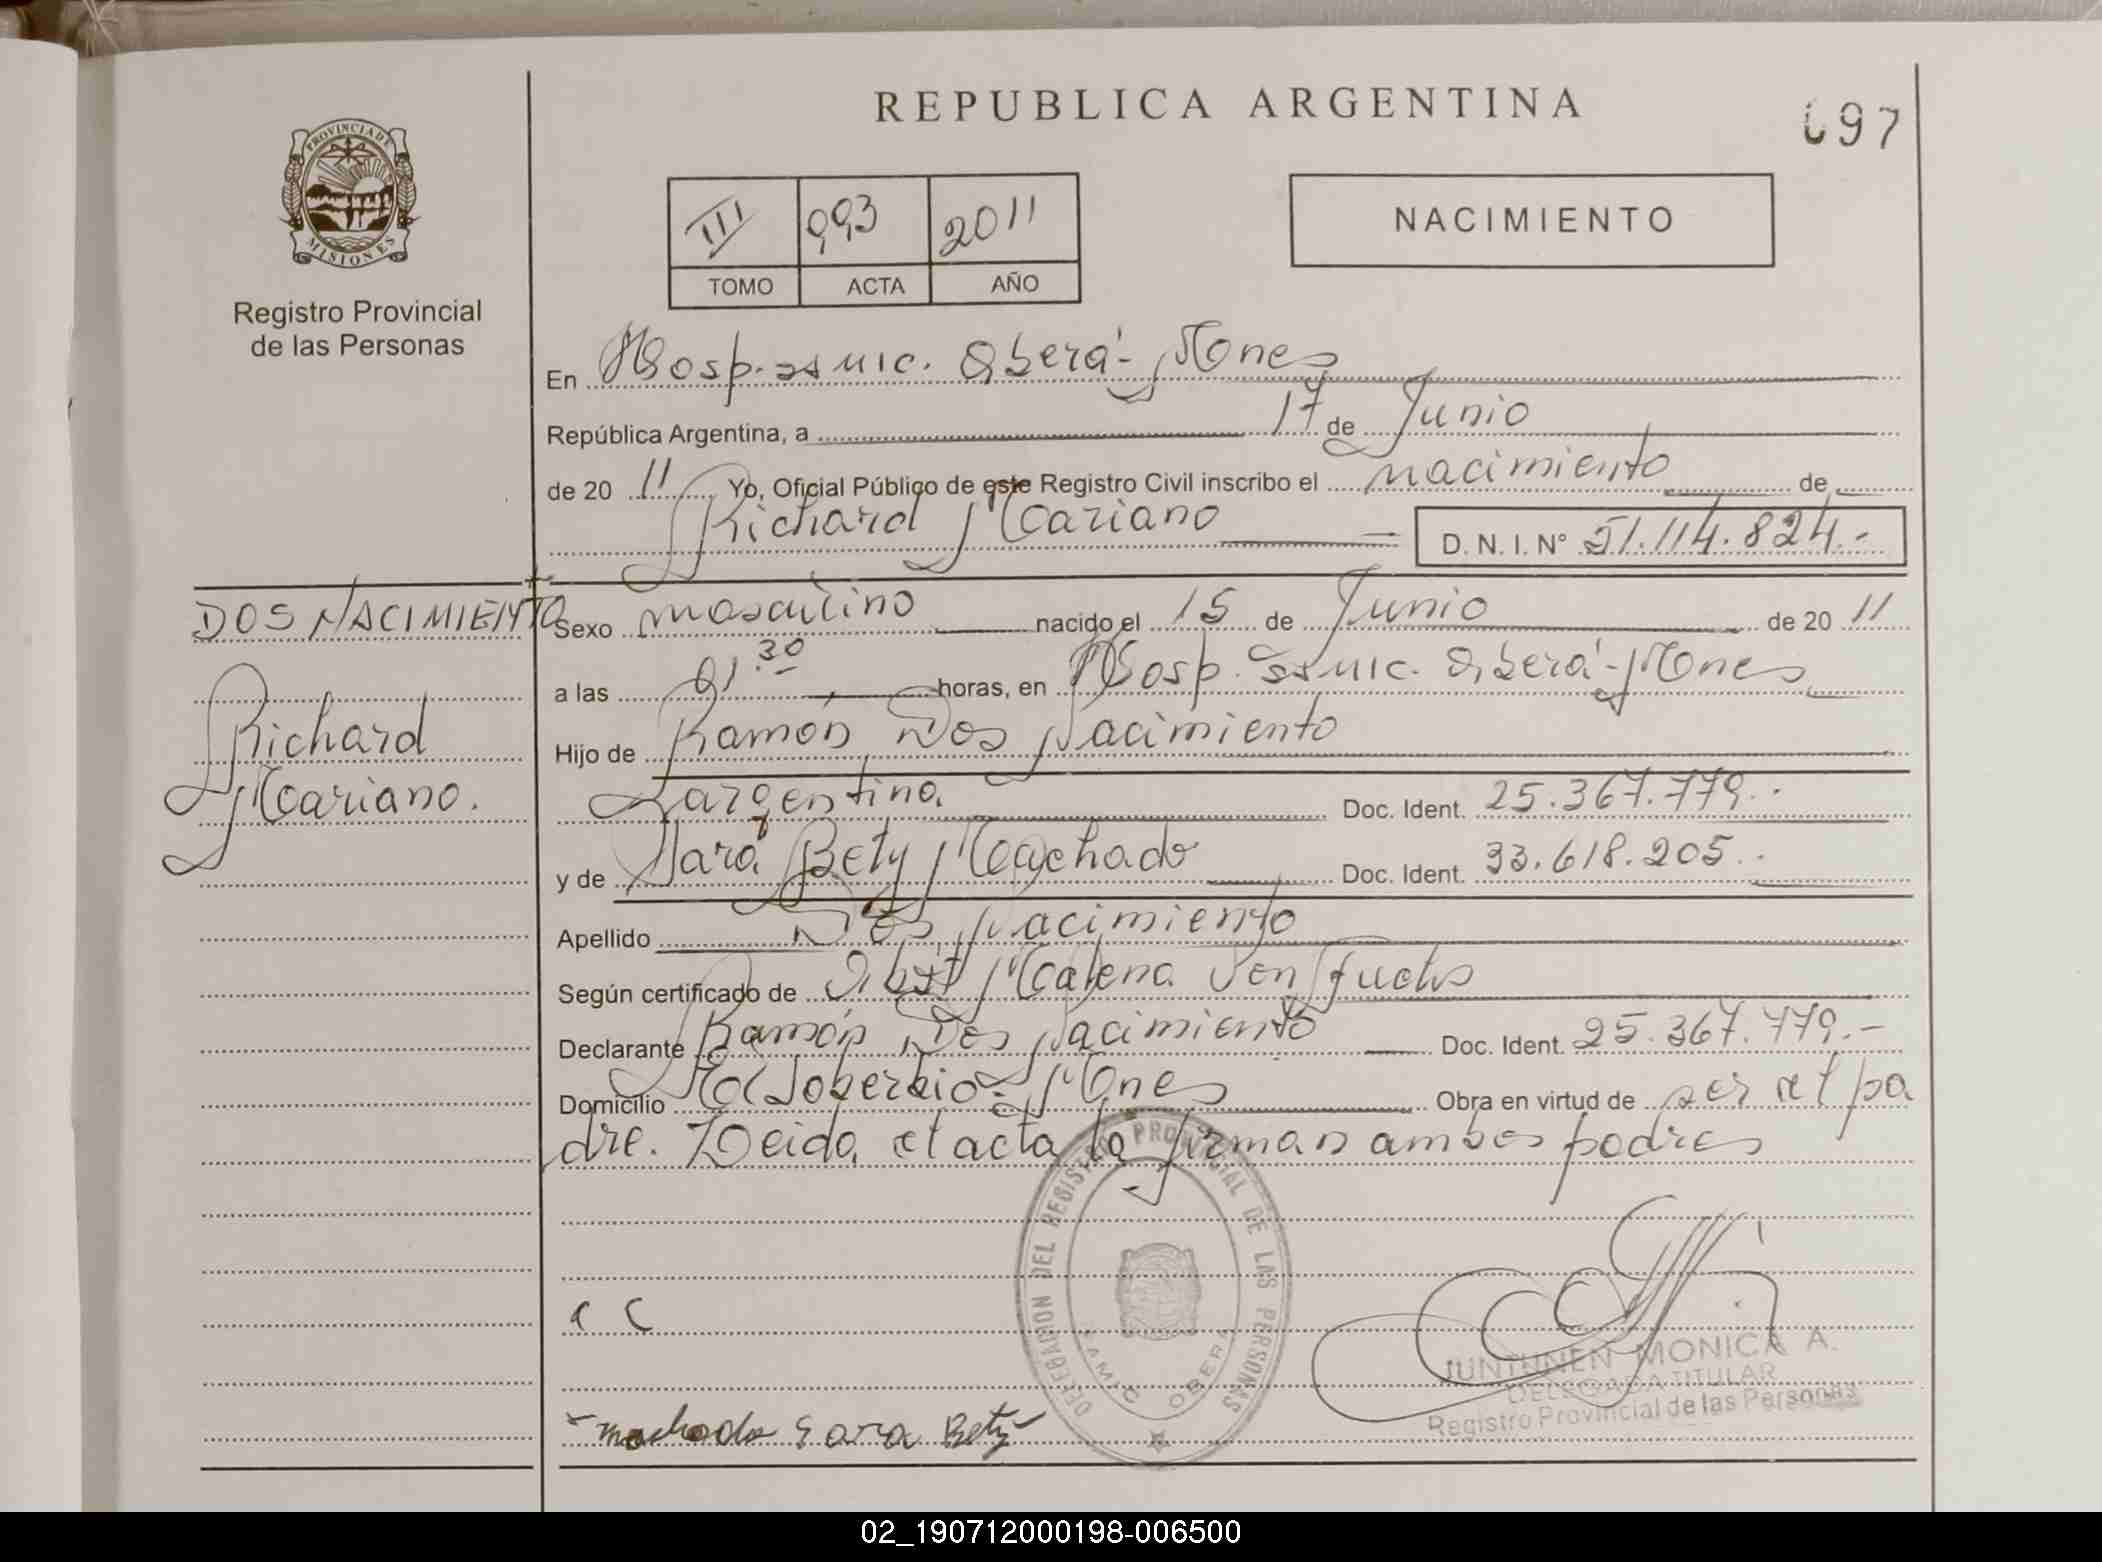 REPUBLICA ARGENTINA
697
PROVINCIA DE
MISIONES
Registro Provincial
de las Personas
III 993 2011
TOMO ACTA AÑO
NACIMIENTO
En Hosp. Samic. Oberá - Mones
República Argentina, a 17 de Junio
de 20 11 Yo, Oficial Público de este Registro Civil inscribo el nacimiento de
Richard Mariano D. N. I. N° 51.114.824.-
DOS NACIMIENTO
Richard
Mariano.
Sexo masculino nacido el 15 de Junio de 20 11
a las 01.30 horas, en Hosp. Samic. Oberá - Mones
Hijo de Ramón Dos Nacimiento
argentino. Doc. Ident. 25.367.779.-
y de Sara Bety Machado Doc. Ident. 33.618.205.-
Apellido Dos Nacimiento
Según certificado de Obst Malena
Declarante Ramón Dos Nacimiento Doc. Ident. 25.367.779.-
Domicilio El Soberbio - Mones Obra en virtud de ser el pa
dre. Leida el acta la firman ambos padres
DELEGACION DEL REGISTRO PROVINCIAL DE LAS PERSONAS
SAMIC OBERA
JUNTUNEN MONICA A.
DELEGADA TITULAR
Registro Provincial de las Personas
machado Sara Bety
02_190712000198-006500